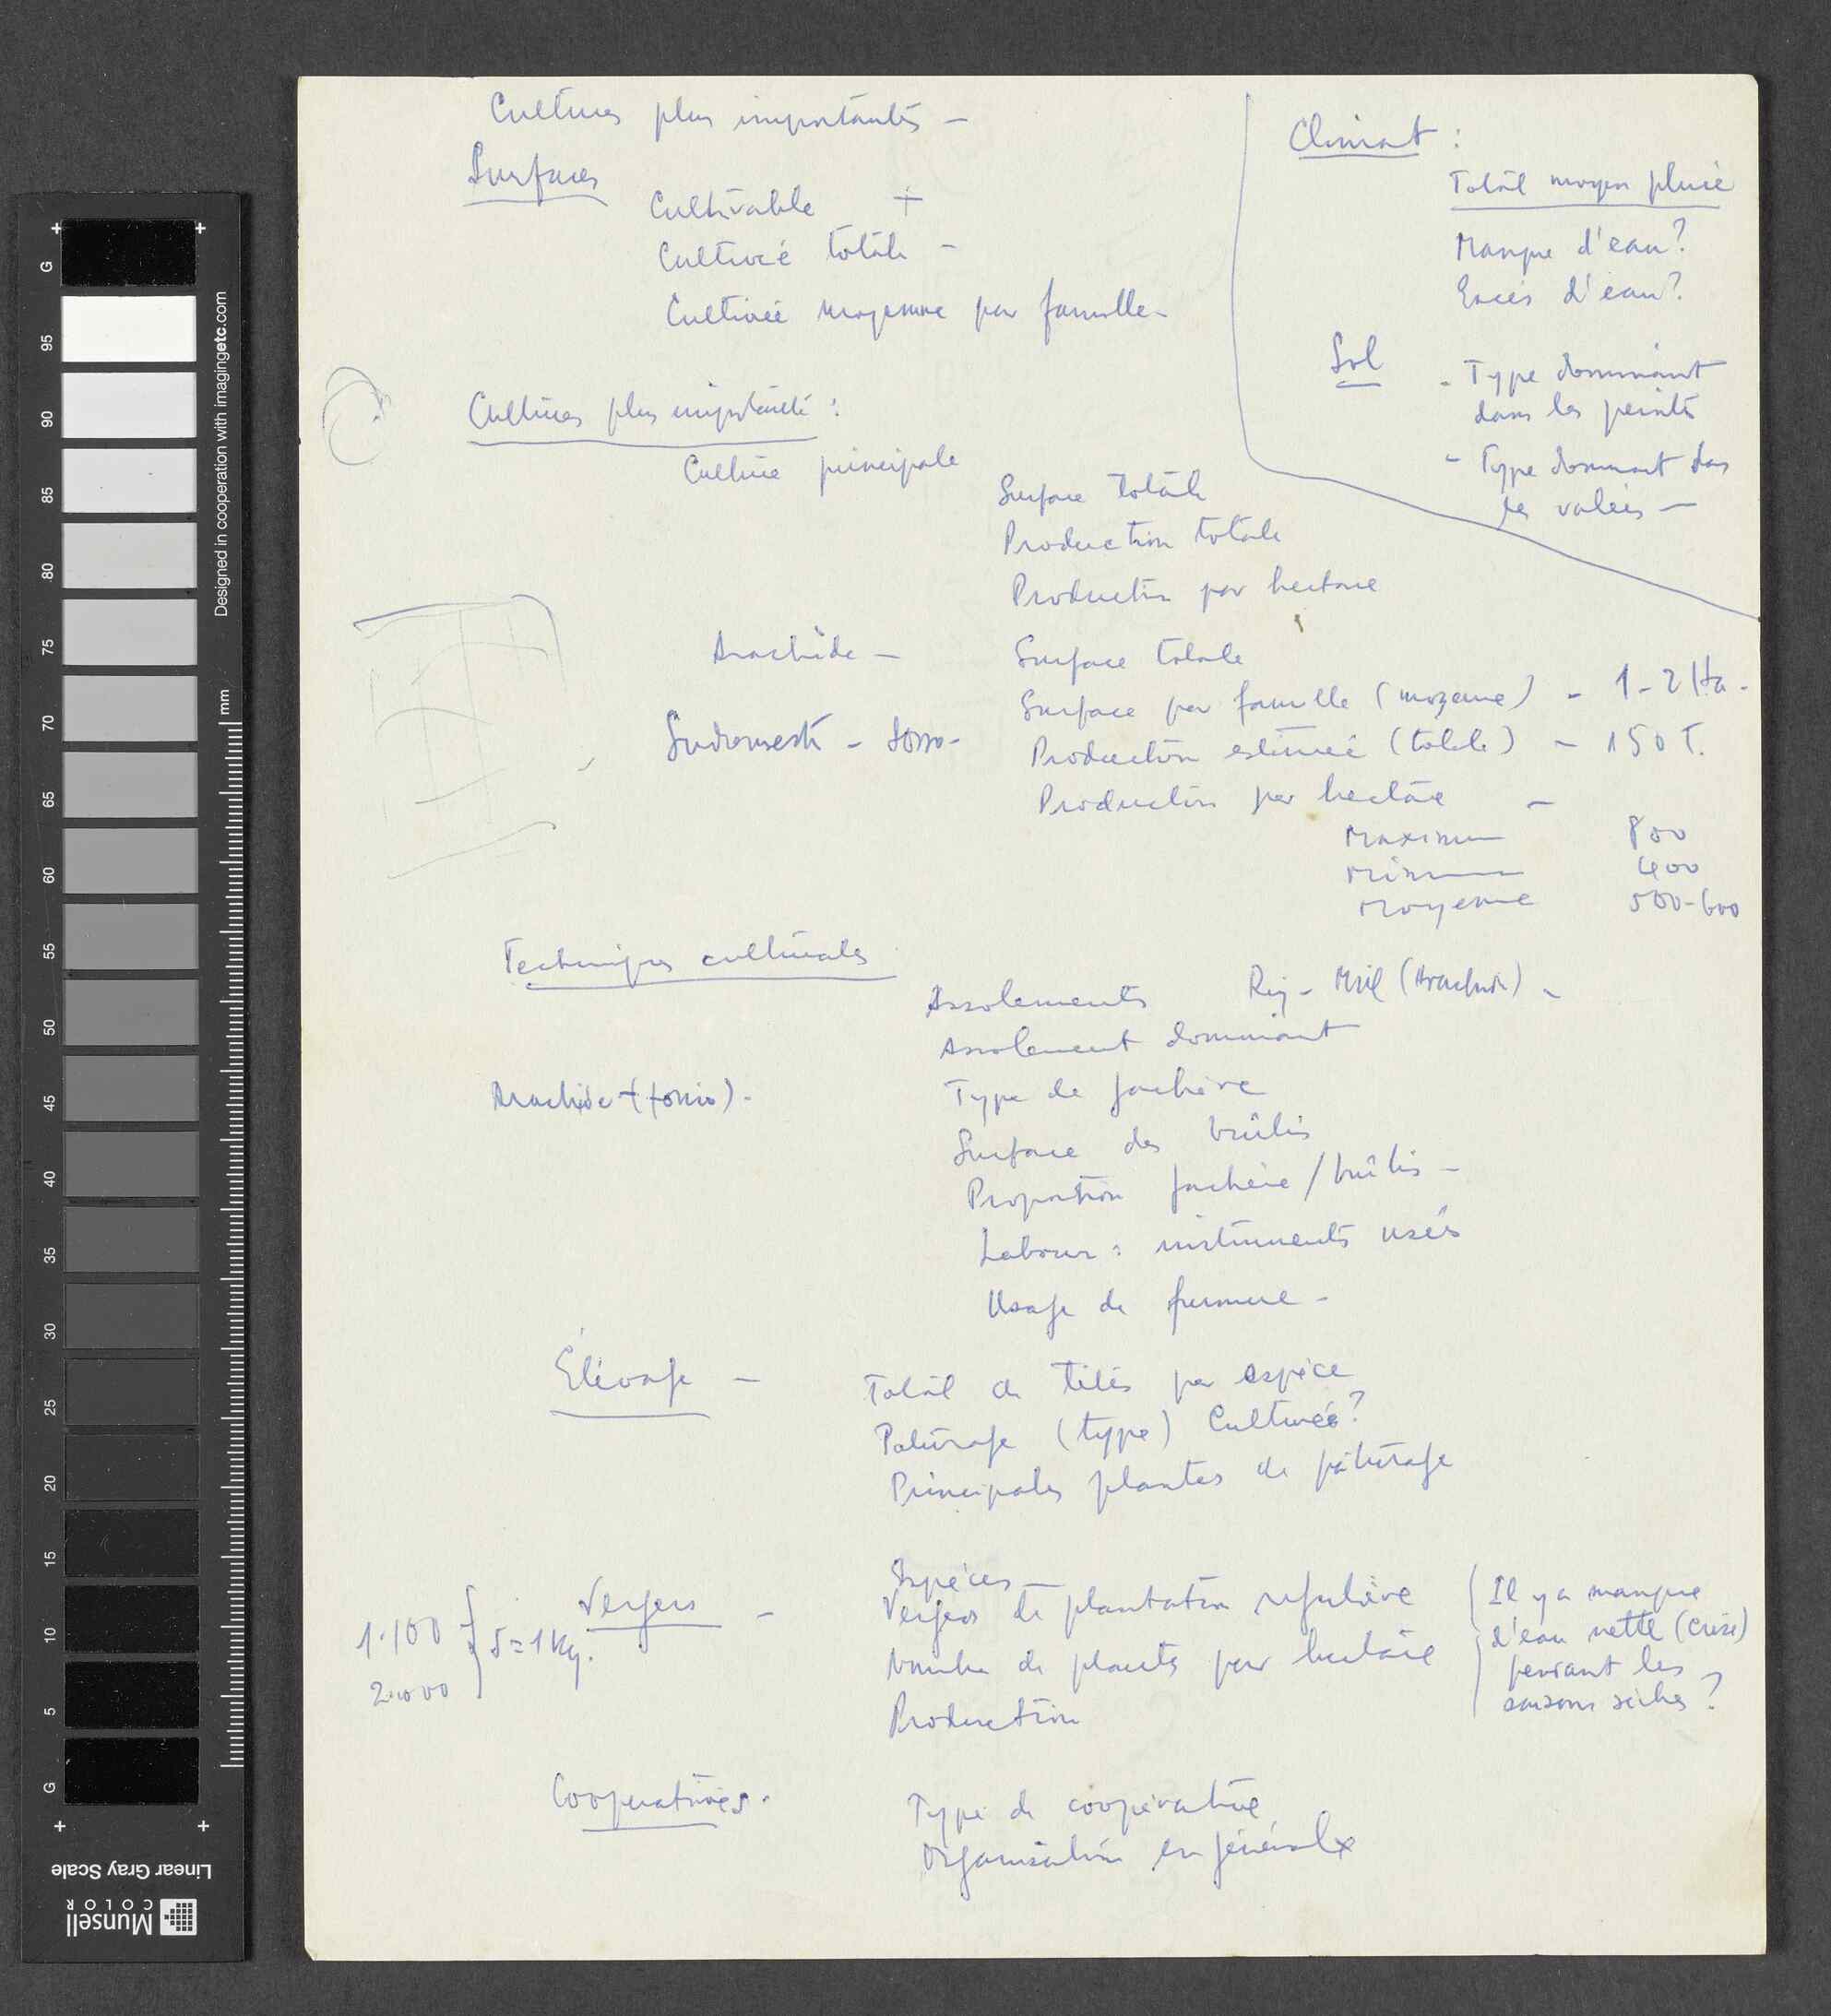 Cultures plus importantes -
Surfaces
Cultivable +
Cultivé totale -
Cultivée moyenne par famille -
Climat :
Total moyen pluie
Manque d'eau?
Excés d'eau?
Sol
- Type dominant
dans les
- Type dominant dans
les valées -
Cultures plus importante :
Culture principale
Surface totale
Production totale
Production par hectare
Arachide -
Surface totale
Surface par famille (moyenne) - 1-2 Ha -
Production estimée (totale) - 150 T.
Production par hectare -
Maximum 800
Minimum 400
Moyenne 500-600
Techniques culturales
Assolements Riz - Mil (Arachide) -
Assolement dominant
Arachide + (fonio) -
Type de jachère
Surface des brûlis
Proportion jachère / brûlis -
Labour : instruments usés
Usage de fumure -
Élévage -
Total de têtes par espèce
Paturage (type) Cultivés?
Principales plantes de pâturage
Vergers -
Espéces -
Vergers de plantation régulière
Nombre de plants par hectare
Production
1.100
2.000
5 = 1 Kg.
Il y a manque
d'eau nette (crise)
pendant les
saisons sèches ?
Cooperatives.
Type de coopérative
Organisation en générale
G
95
90
85
80
75
70
65
60
55
50
45
40
35
30
25
20
15
10
5
G
mm
Designed in cooperation with imagingetc.com
Linear Gray Scale
Munsell
COLOR